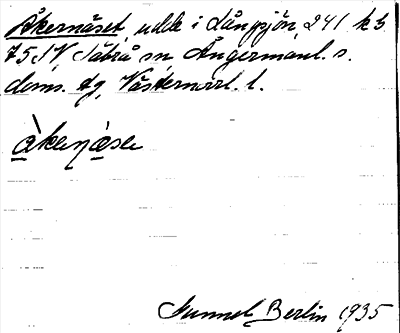 Åkernäset, udde i Långsjön, 241 kb
75 SV Tåsjö sn, Ångermanl. s.
doms. dg, Västernorrl. l.
àkeṇäsa
Gunnel Berlin 1935